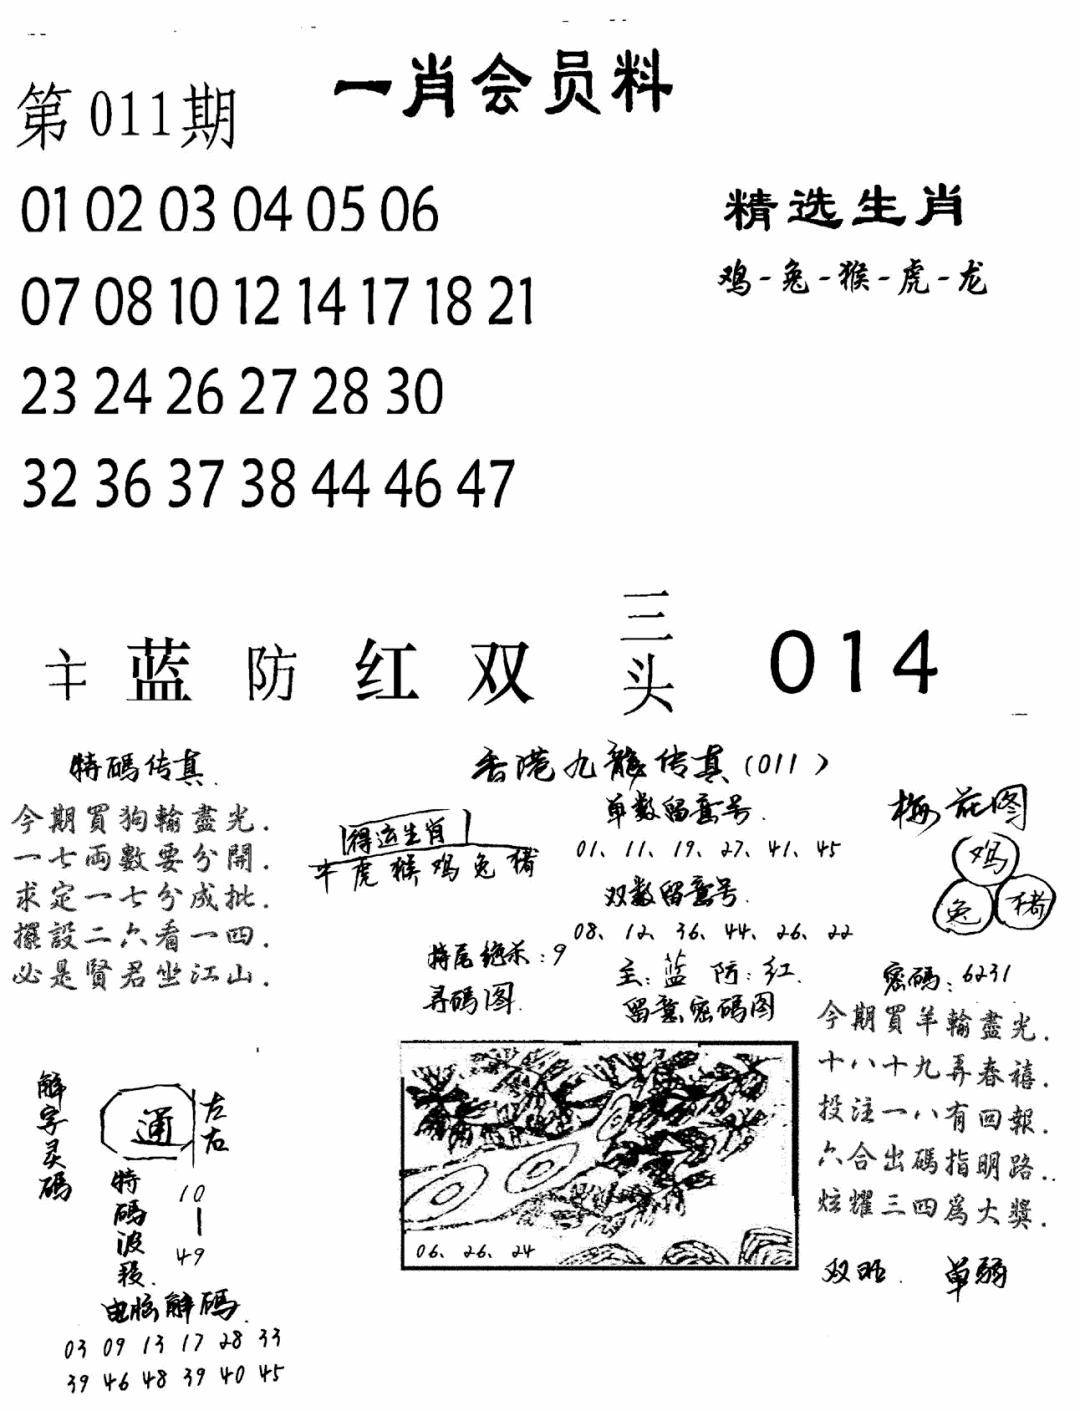 一肖会员料
第011期
01 02 03 04 05 06
精选生肖
07 08 10 12 14 17 18 21
鸡-兔-猴-虎-龙
23 24 26 27 28 30
32 36 37 38 44 46 47
主 蓝 防 红 双 三头 014
特碼传真.
今期買狗輸盡光.
一七両數要分開.
求定一七分成批.
擺設二六看一四.
必是賢君坐江山.
香港九龍传真(011)
得运生肖
牛虎猴鸡兔猪
单数留意号.
01、11、19、27、41、45
双数留意号.
08、12、36、44、26、22
特尾绝杀:9
主:蓝 防:红.
寻碼图.
留意密碼图
06、26、24
梅花图
鸡
兔 猪
密碼:6231
今期買羊輸盡光.
十八十九弄春禧.
投注一八有回報.
六合出碼指明路..
炫耀三四爲大獎.
双旺. 单弱
解字灵碼
通
左右
特碼波段.
10
49
电脑解碼.
03 09 13 17 28 33
39 46 48 39 40 45